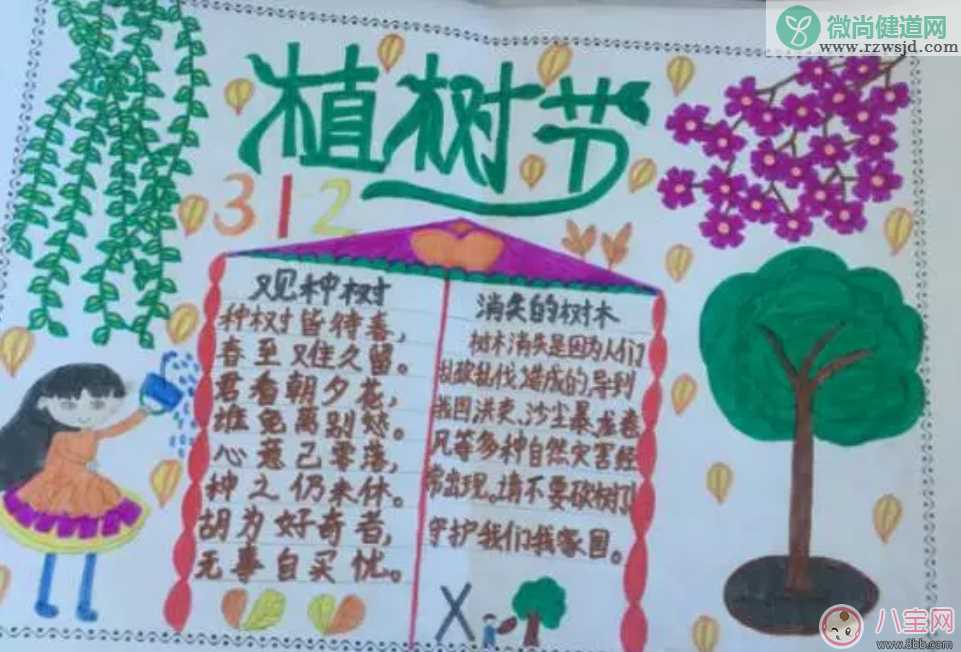 微尚健道网
www.rzwsjd.com
植树节
312
观种树
种树皆待春,
春至难久留。
君看朝夕花,
谁免离别愁。
心意已零落,
种之仍未休。
胡为好奇者,
无事自买忧。
消失的树木
树木消失是因为人们
乱砍乱伐,造成的导到
我国洪灾、沙尘暴龙卷
风等多种自然灾害经
常出现。请不要砍树了
守护我们我家园。
八宝网
www.8bb.com